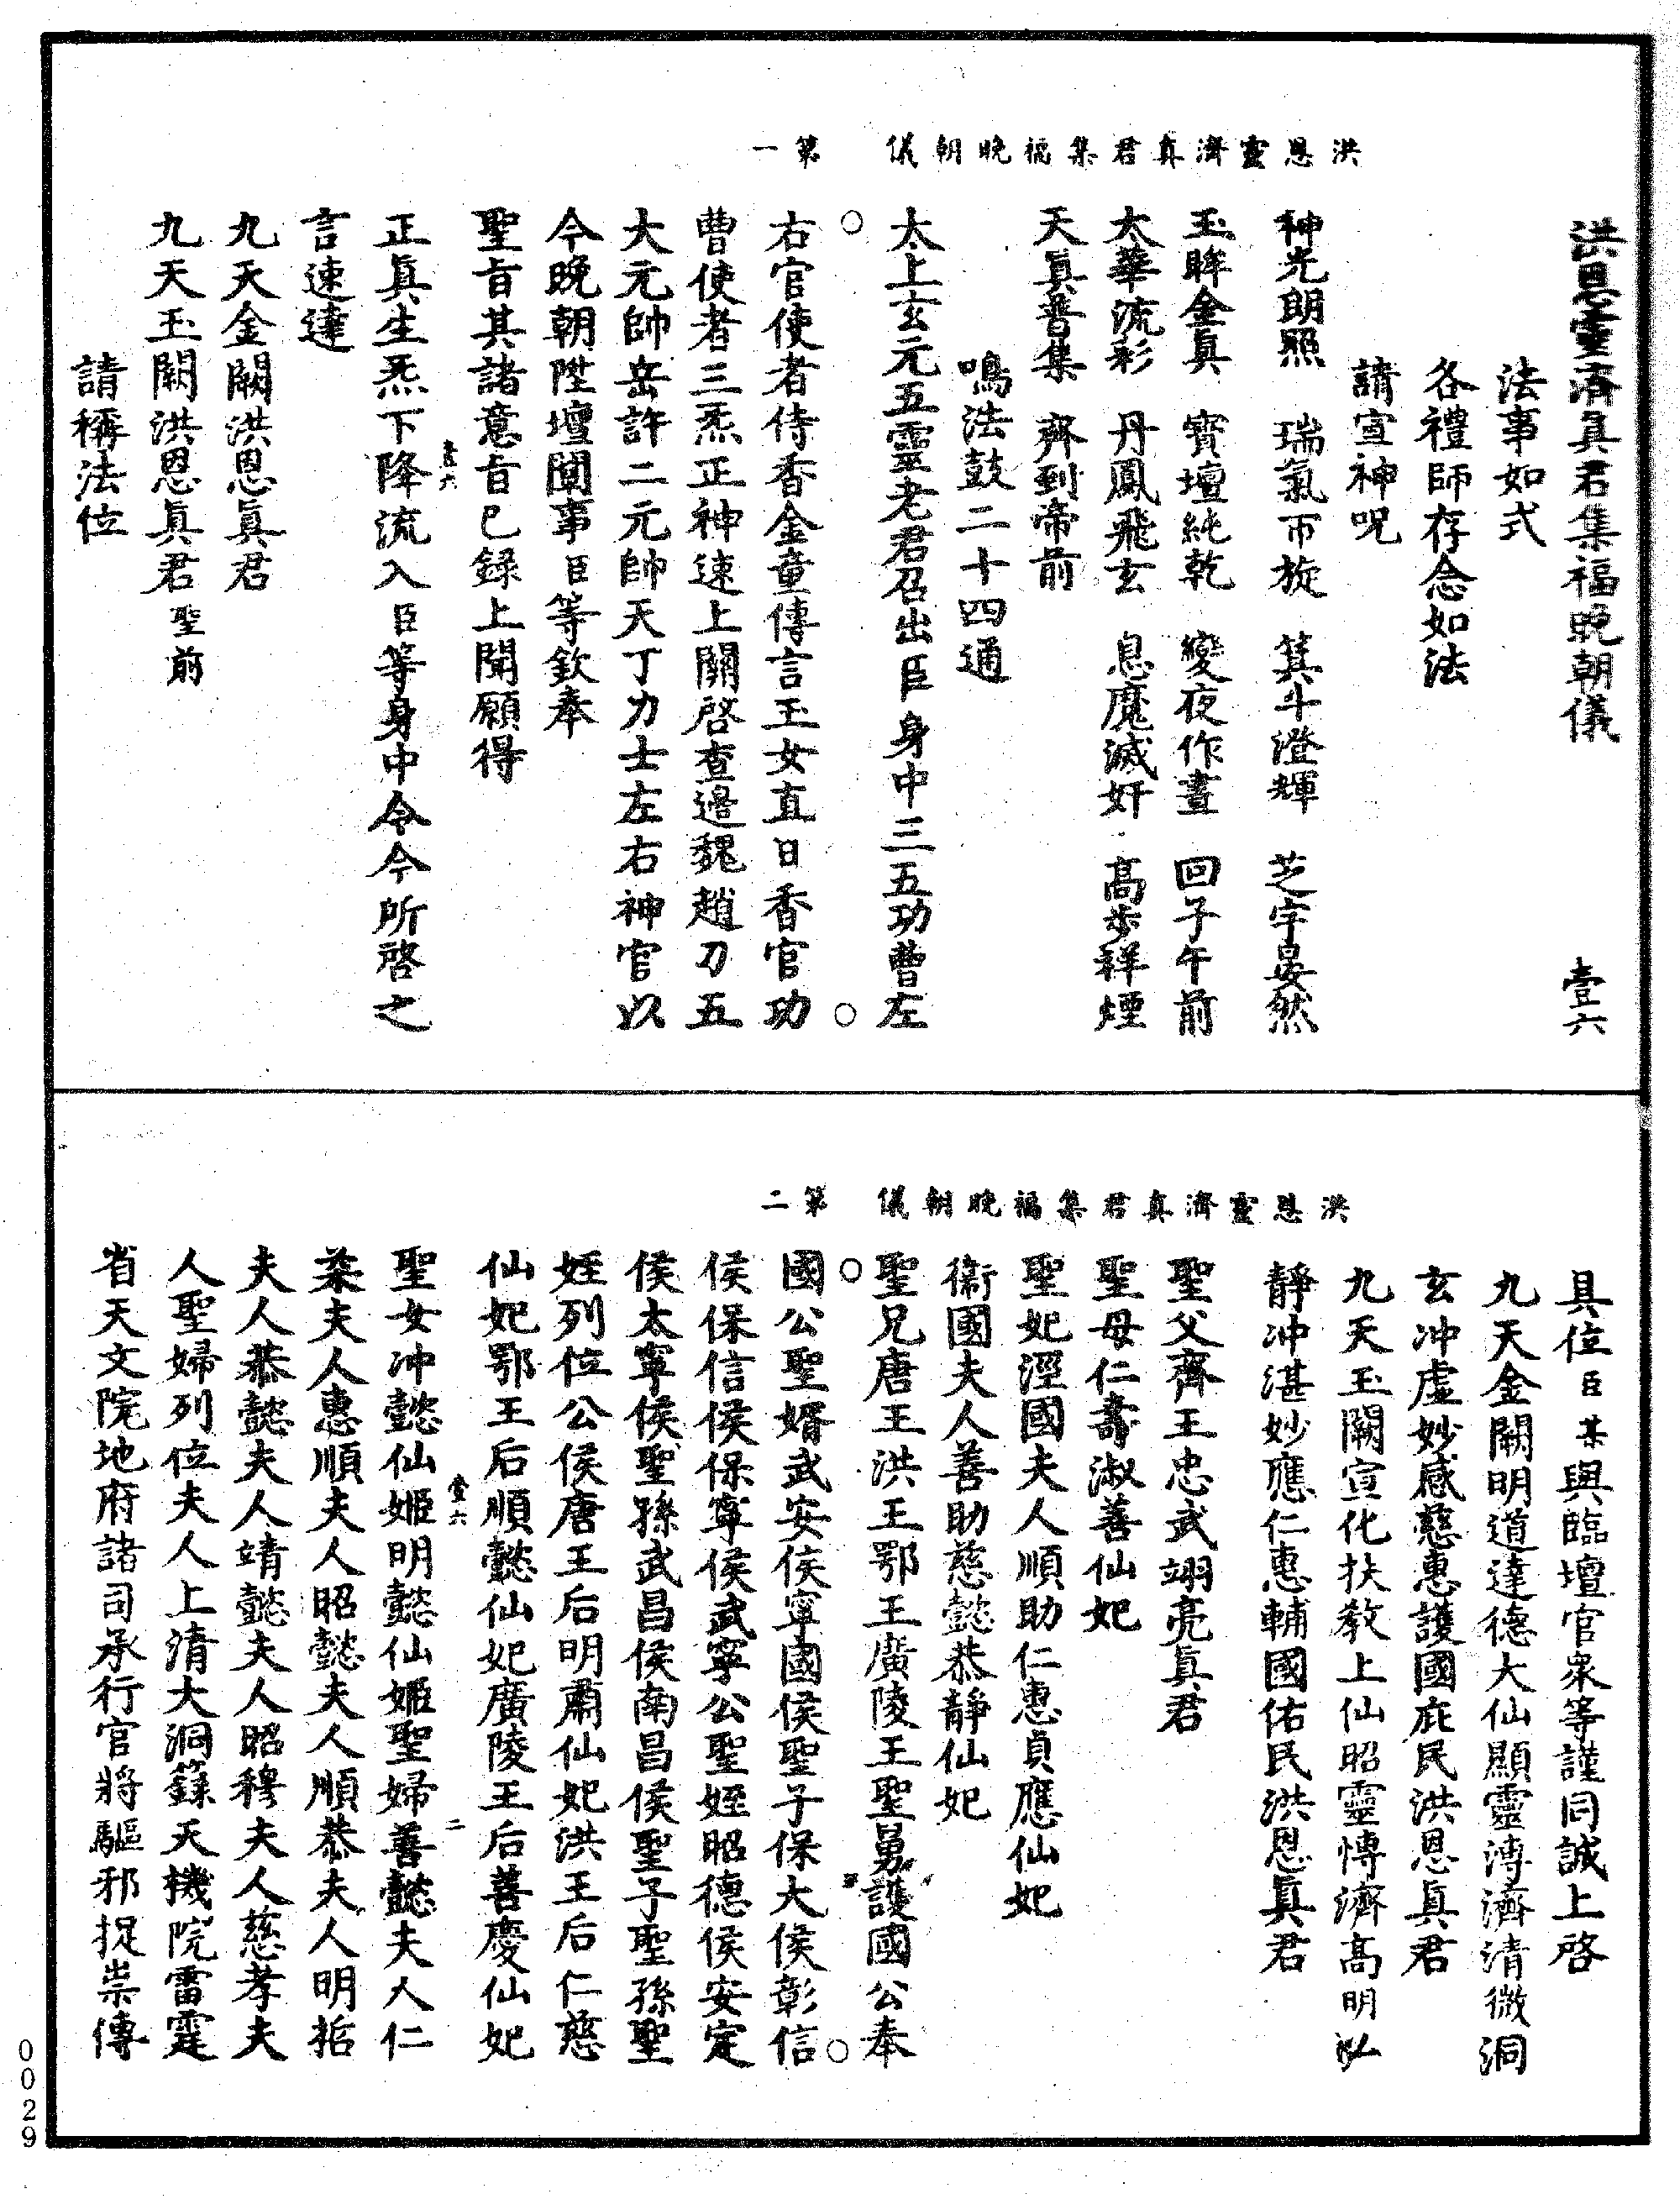 洪恩靈濟真君集福晚朝儀　第一
洪恩靈濟眞君集福晚朝儀　壹六
法事如式
各禮師存念如法
請宣神呪
神光朗照　瑞氣帀旋　箕斗澄輝　芝宇晏然
玉眸金眞　寶壇純乾　變夜作晝　回子午前
太華流彩　丹鳳飛玄　息魔滅奸　高步祥煙
天眞普集　齊到帝前
鳴法鼓二十四通
太上玄元五靈老君召出臣身中三五功曹左
右官使者侍香金童傳言玉女直日香官功
曹使者三炁正神速上關啓查邉魏趙刀五
大元帥岳許二元帥天丁力士左右神官以
今晚朝陞壇聞事臣等欽奉
聖旨其諸意旨已録上聞願得
壹六
正眞生炁下降流入臣等身中令今所啓之
言速達
九天金闕洪恩眞君
九天玉闕洪恩眞君聖前
請稱法位
洪恩靈濟真君集福晚朝儀　第二
具位臣某與臨壇官衆等謹同誠上啓
九天金闕明道達德大仙顯靈溥濟清微洞
玄冲虛妙感慈惠護國庇民洪恩眞君
九天玉闕宣化扶教上仙昭靈慱濟高明弘
靜冲湛妙應仁惠輔國佑民洪恩眞君
聖父齊王忠武翊亮眞君
聖母仁壽淑善仙妃
聖妃涇國夫人順助仁惠貞應仙妃
衞國夫人善助慈懿恭靜仙妃
聖兄唐王洪王鄂王廣陵王聖舅護國公奉
國公聖婿武安侯寧國侯聖子保大侯彰信
侯保信侯保寧侯武寧公聖姪昭德侯安定
侯太寧侯聖孫武昌侯南昌侯聖子聖孫聖
姪列位公侯唐王后明肅仙妃洪王后仁慈
仙妃鄂王后順懿仙妃廣陵王后善慶仙妃
壹六　二
聖女冲懿仙姬明懿仙姬聖婦善懿夫人仁
柔夫人惠順夫人昭懿夫人順恭夫人明哲
夫人恭懿夫人靖懿夫人昭穆夫人慈孝夫
人聖婦列位夫人上清大洞籙天機院雷霆
省天文院地府諸司承行官將驅邪捉祟傳
0029